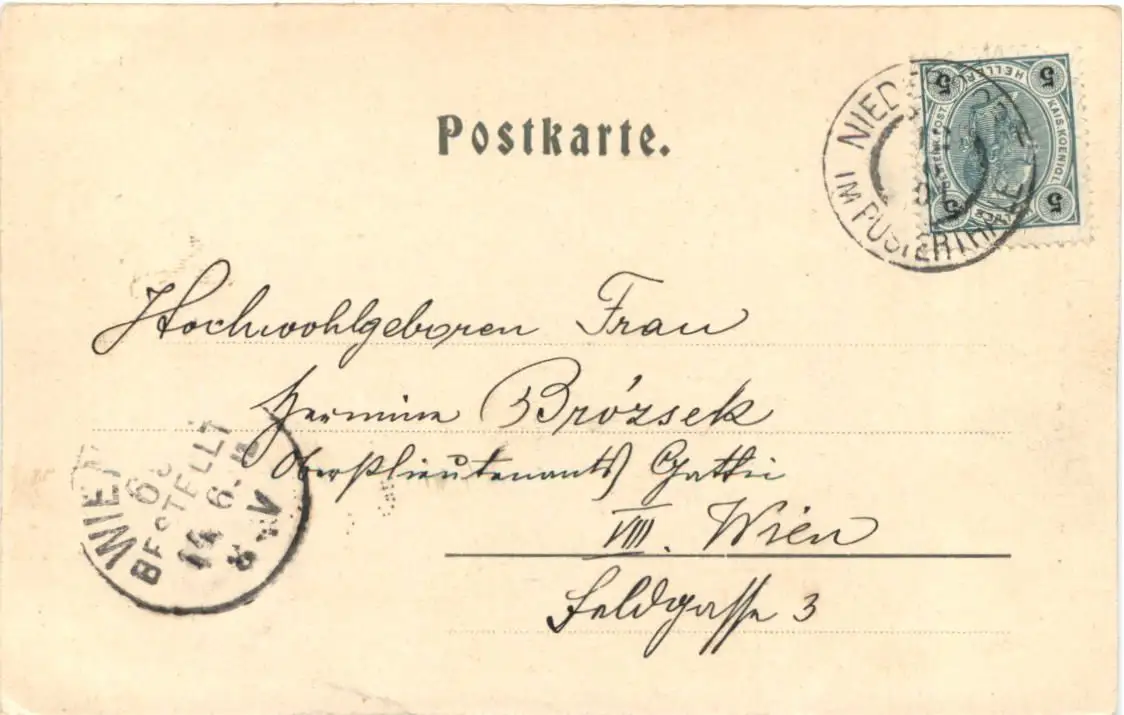 Postkarte.
5 HELLER 5
KAIS. KOENIGL.
5 5
NIED
IM PUSTERTHALE
Hochwohlgeboren Frau
Hermine Brózsek
Oberstlieutenants Gattin
VIII. Wien
Feldgasse 3
WIEN
BESTELLT
14 6
8 V